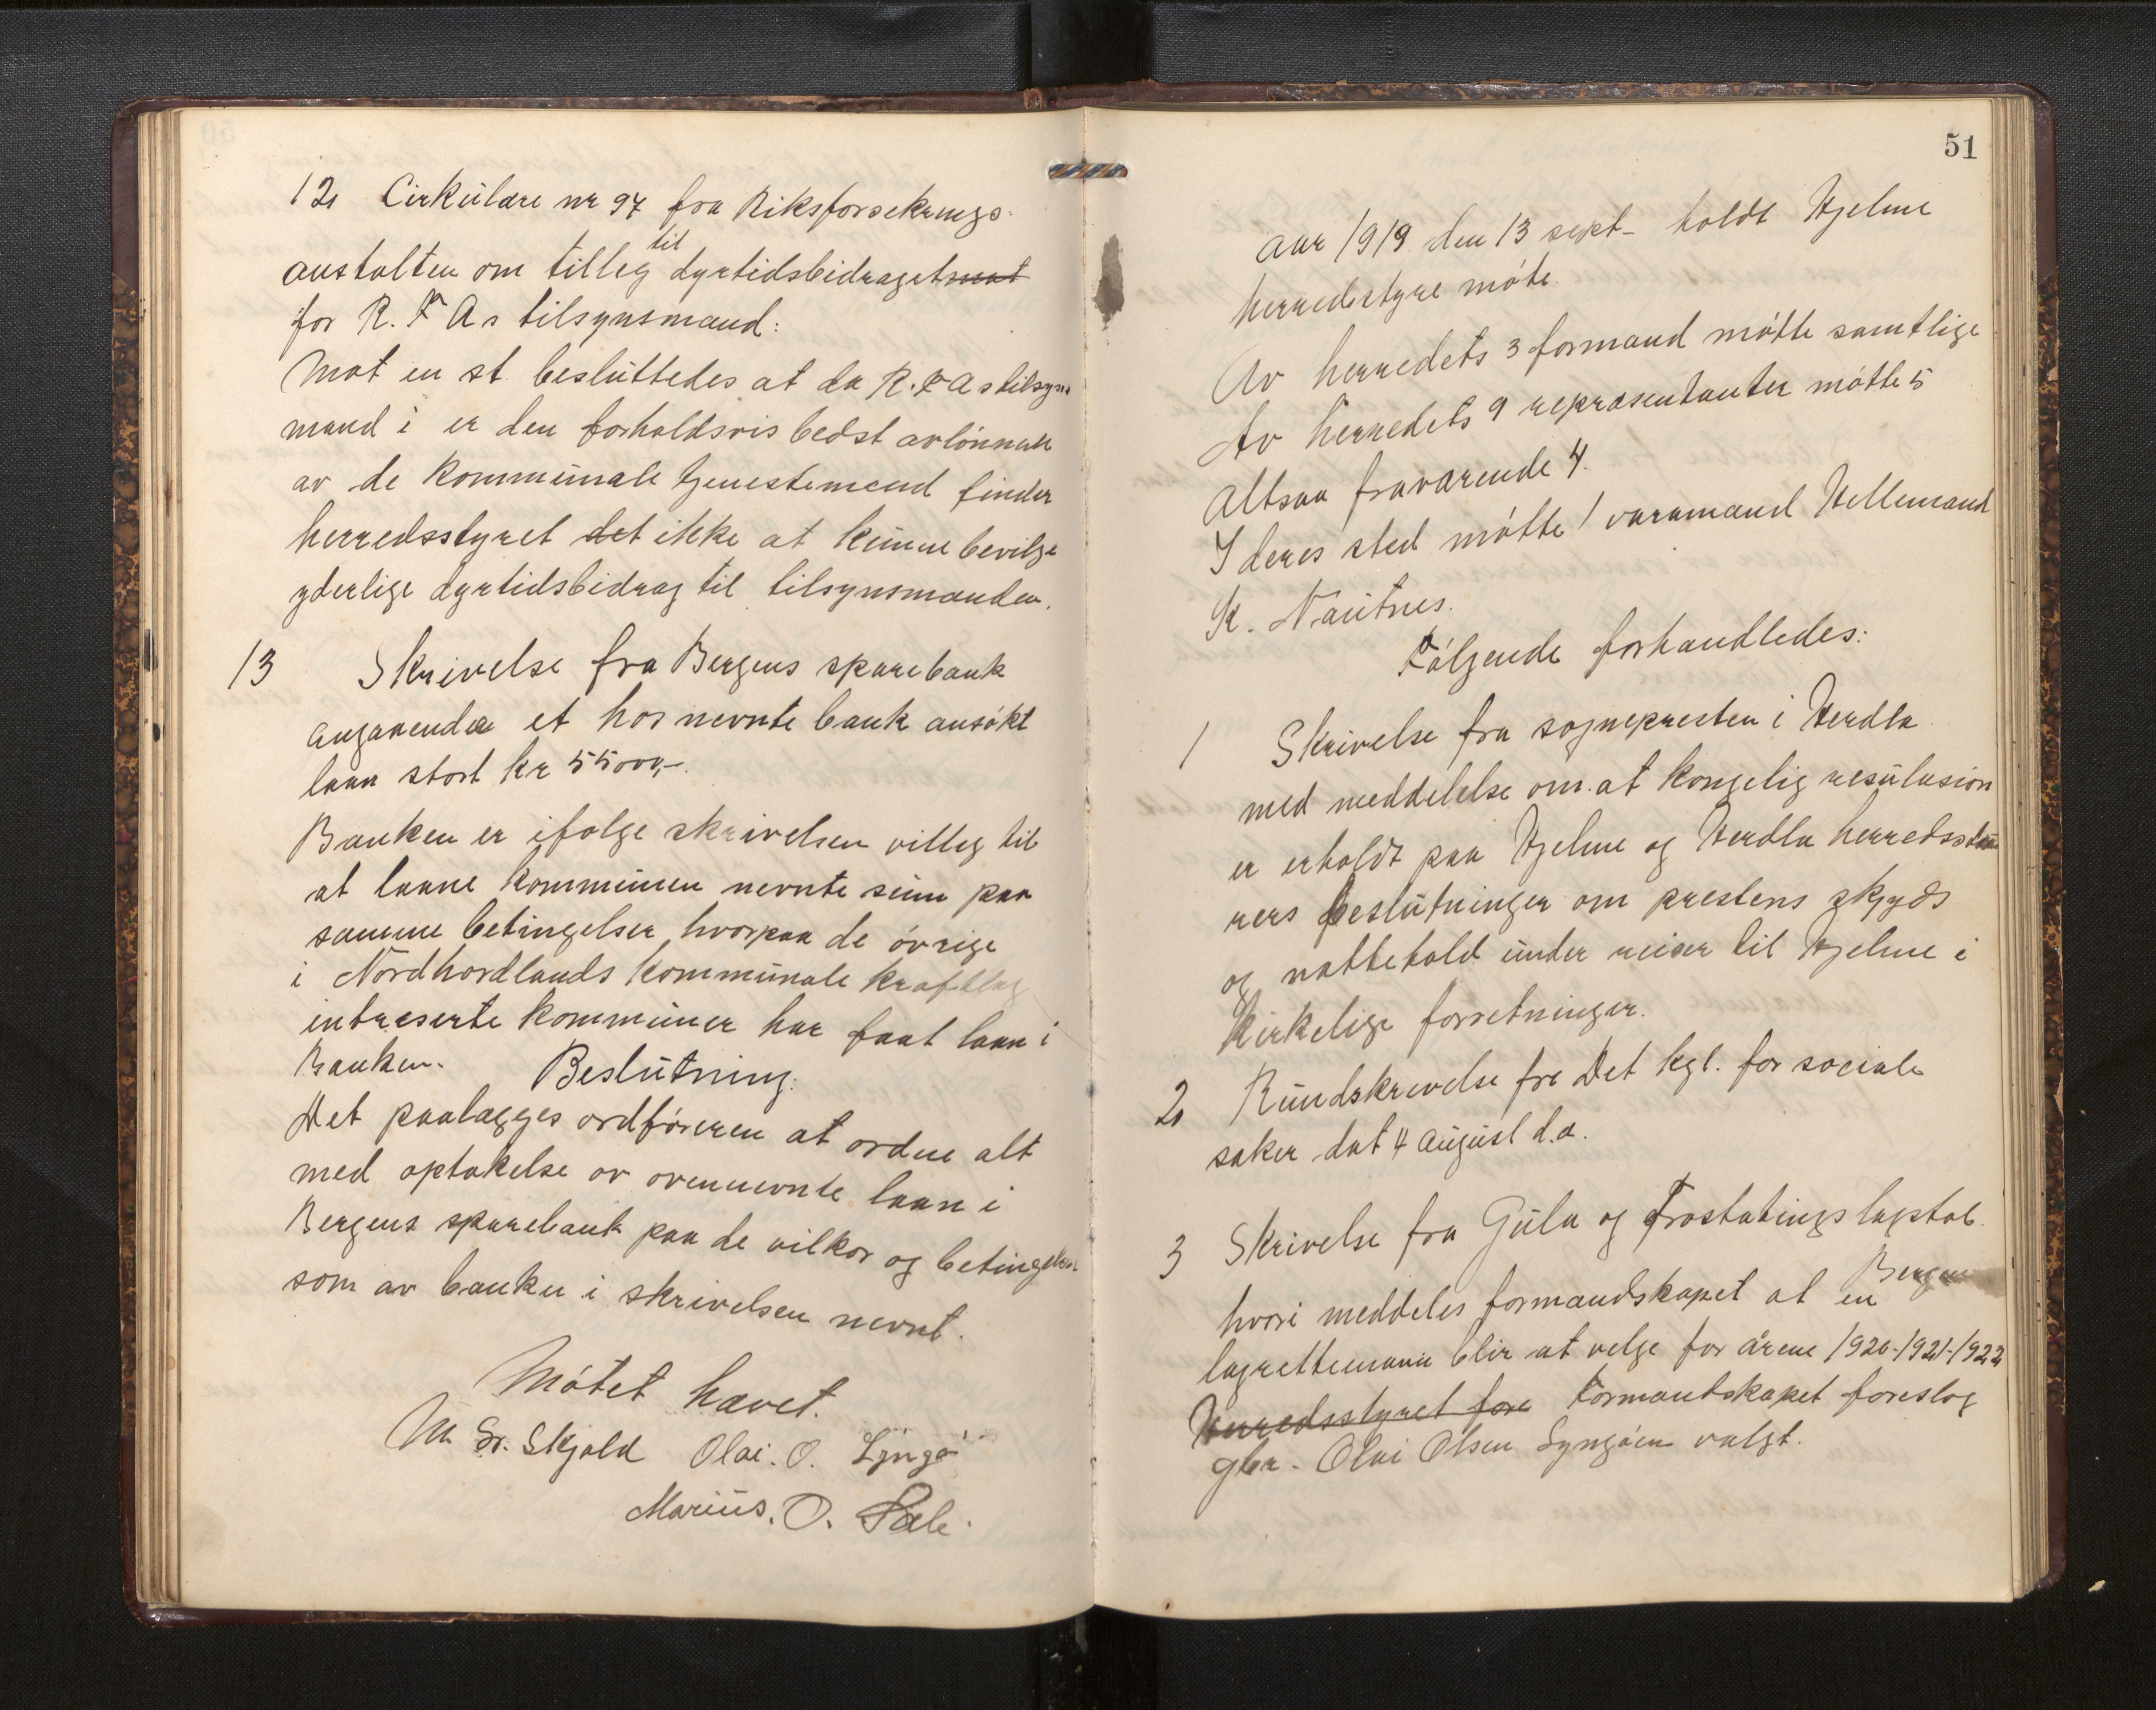 12 Cirkülære nr 97 fra Riksforsekrings-
anstalten om tilleg til dyrtidsbidraget
for R. F As tilsynsmand:
Mot en st. beslüttedes at da R. F As tilsyns
mand i er den forholdsvis bedst avlönnede
av de kommünale tjenestemænd finder
herredsstyret det ikke at künne bevilge
yderlige dyrtidsbidrag til tilsynsmanden.
13 Skrivelse fra Bergens sparebank
angaaende et hos nevnte bank ansökt
laan stort kr 55000,-.
Banken er ifölge skrivelsen villig til
at laane kommünen nevnte süm paa
samme betingelser hvorpaa de övrige
i Nordhordlands kommünale kraftlag
intreserte kommüner har faat laan i
Banken. Beslütning:
Det paalægges ordföreren at ordne alt
med optakelse av ovennevnte laan i
Bergens sparebank paa de vilkor og betingelser
som av banken i skrivelsen nevnt.
Mötet hævet.
M Sr. Skjold Olai. O. Lyngö
Marius. O. Sæle.
51
Aar 1919 den 13 sept- holdt Hjelme
herredsstyre möte.
Av herredets 3 formænd mötte samtlige
Av herredets 9 repræsentanter mötte 5
Altsaa fraværende 4.
I deres sted mötte 1 varamand Hellemand
K. Naütnes.
Fölgende forhandledes:
1 Skrivelse fra sognepresten i Herdla
med meddelelse om at kongelig resülusion
er erholdt paa Hjelme og Herdla herredssty
rers beslütninger om prestens skyds
og nattehold ünder reiser til Hjelme i
kirkelige forretninger.
2 Ründskrivelse fra Det kgl. for sociale
saker dat 4 Aügüst d.a.
3 Skrivelse fra Güla og Frostatings lagstol.
hvori meddeles formandskapet at en Bergen
lagrettemann blir at velge for årene 1920-1921-1922
Herredsstyret fore Formandskapet foreslog
gbr. Olai Olsen Lyngöen valgt.